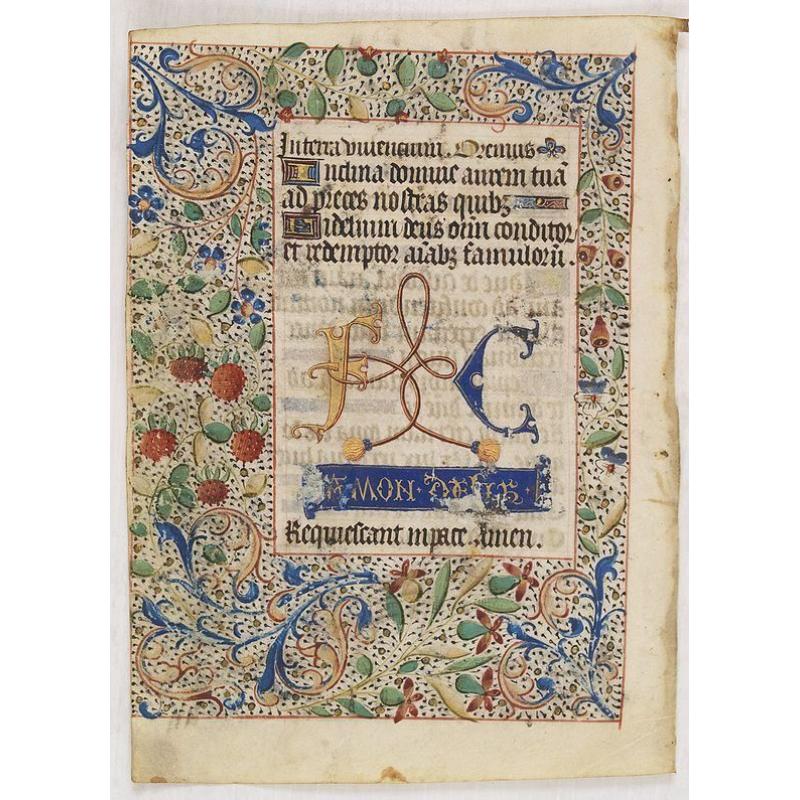 In terra viuencium. Oremus
Inclina domine aurem tuā
ad preces nostras quibꝫ
Fidelium deus om̄ conditor
et redemptor aīabꝫ famulorū.
E C
A · MON ·
Requiescant in pace. Amen.